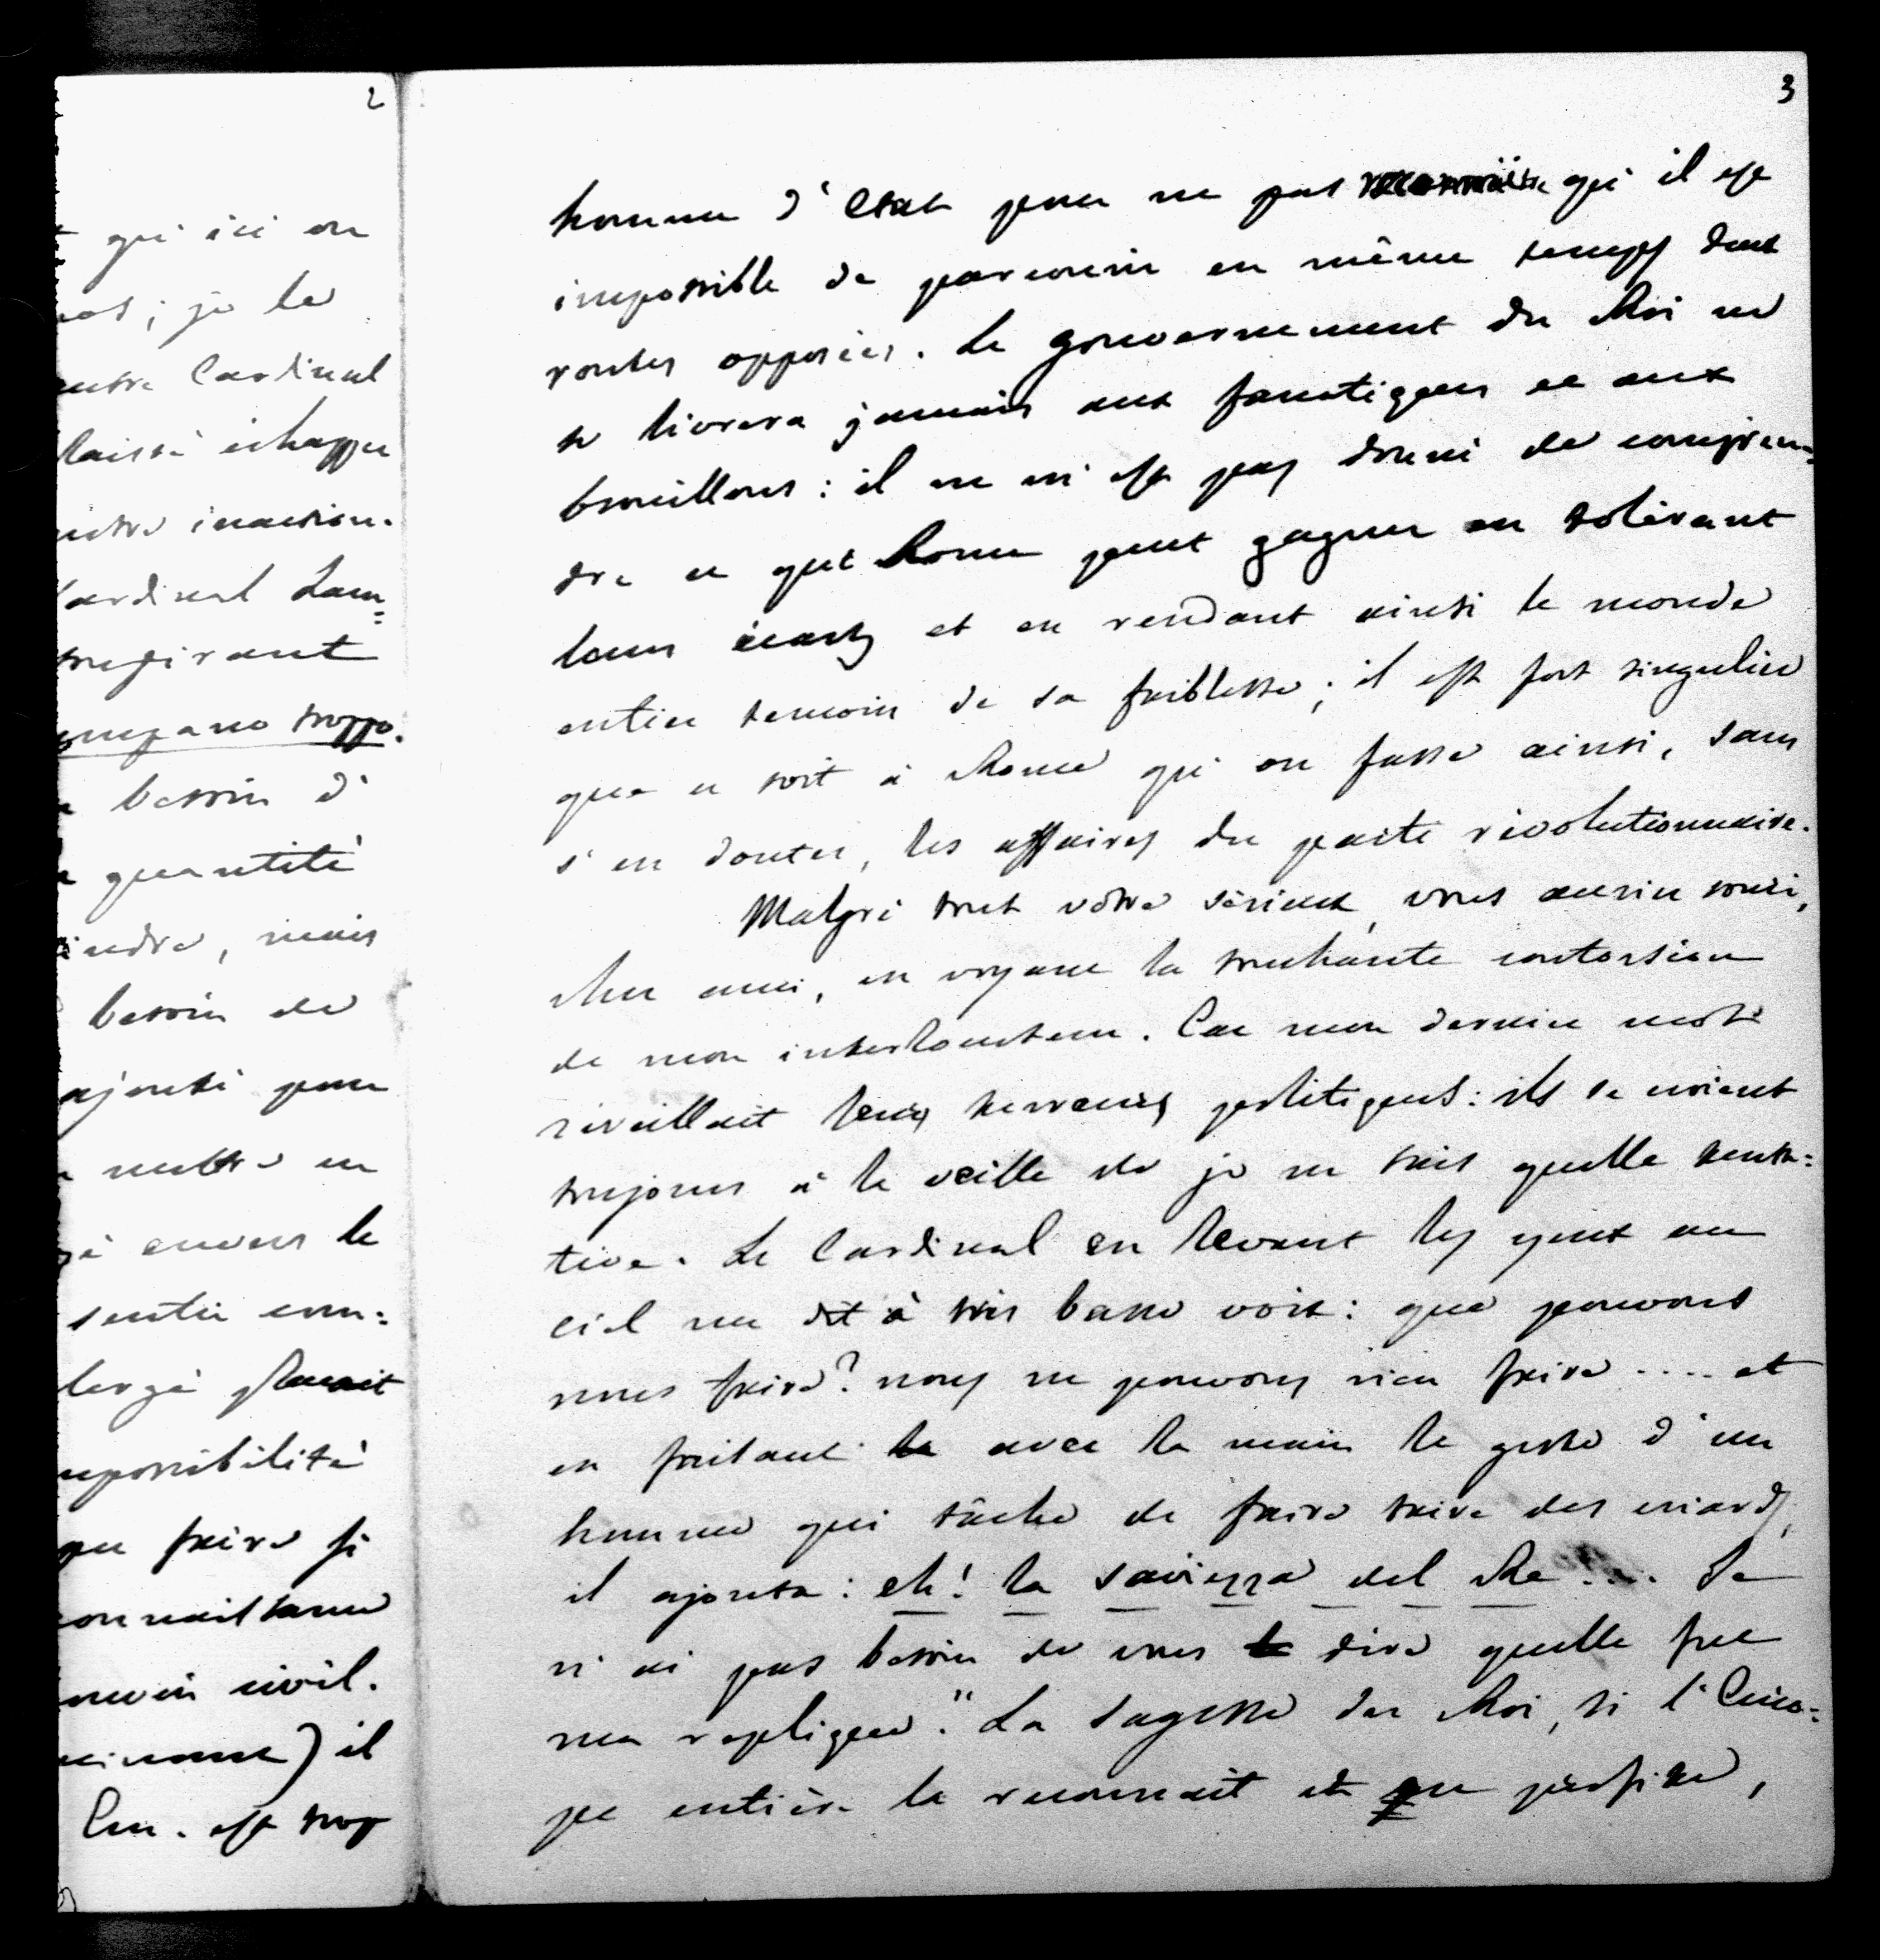 2
qui ici on
pas; je le
autre Cardinal
laissé échapper
notre inaction.
Cardinal Lam=
soupirant
troppo.
besoin d'
quantité
indre, mais
besoin de
ajouté pour
mettre en
envers le
sentir com:
clergé plaçait
mpossibilité
pu faire si
connaissance
pouvoir civil.
) il
Em. est trop
3
homme d'état pour ne pas reconnaître qu'il est
impossible de parcourir en même temps deux
routes opposées. Le gouvernement du Roi ne
se livrera jamais aux fanatiques et aux
brouillons: il ne m'est pas donné de compren=
dre ce que Rome peut gagner en tolérant
leurs écarts et en rendant ainsi le monde
entier temoin de sa faiblesse; il est fort singulier
que ce soit à Rome qu'on fasse ainsi, sans
s'en douter, les affaires du parti révolutionnaire.
Malgré tout votre sérieux, vous auriez souri,
cher ami, en voyant la touchante contorsion
de mon interlocuteur. Car mon dernier mot
réveillait leurs terreurs politiques: ils se croient
toujours à la veille de je ne sais quelle tenta=
tive. Le Cardinal en levant les yeux au
ciel me dit à très basse voix: que pouvons
nous faire? nous ne pouvons rien faire .... et
en faisant avec la main le geste d'un
homme qui tâche de faire taire des criards,
il ajouta: eh! la saviezza del Re .... Je
n'ai pas besoin de vous dire quelle fut
ma replique. "La sagesse du Roi, si l'Euro=
pe entière la reconnait et en profite,